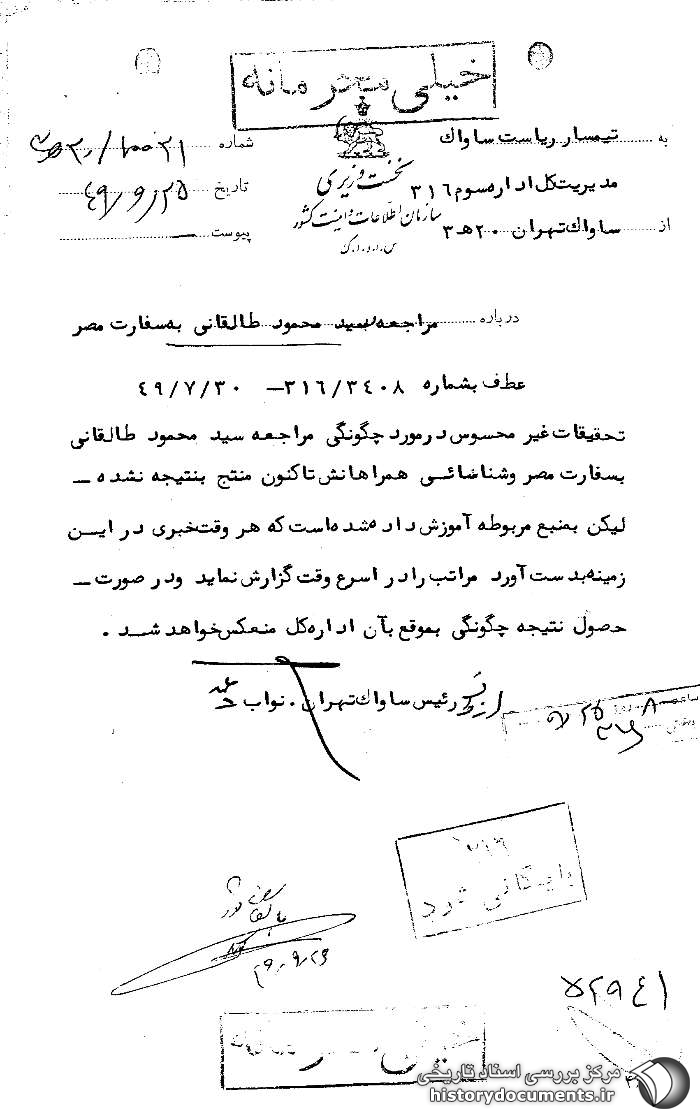 خیلی محرمانه
به تیمسار ریاست ساواك
مدیریت کل اداره سوم ۳۱۶
از ساواك تهران ۲۰ هـ ۳
نخست وزیری
سازمان اطلاعات و امنیت کشور
س.ا.و.ا.ک
شماره ۱۰۰۲۱/
تاریخ ۴۹/۹/۲۵
پیوست
درباره مراجعه سید محمود طالقانی به سفارت مصر
عطف بشماره ۳۱۶/۳۴۰۸ – ۴۹/۷/۳۰
تحقیقات غیر محسوس در مورد چگونگی مراجعه سید محمود طالقانی
بسفارت مصر وشناسائی همراهانش تاکنون منتج بنتیجه نشده –
لیکن بمنبع مربوطه آموزش داده شده است که هر وقت خبری در ایسن
زمینه بدست آورد مراتب را در اسرع وقت گزارش نماید ودر صورت –
حصول نتیجه چگونگی بموقع بآن اداره کل منعکس خواهد شد .
رئیس ساواك تهران . نواب
۳۱۶
بایگانی شود
۴۹/۹/۲۶
۵۲۹۴۱
مرکز بررسی اسناد تاریخی
historydocuments.ir